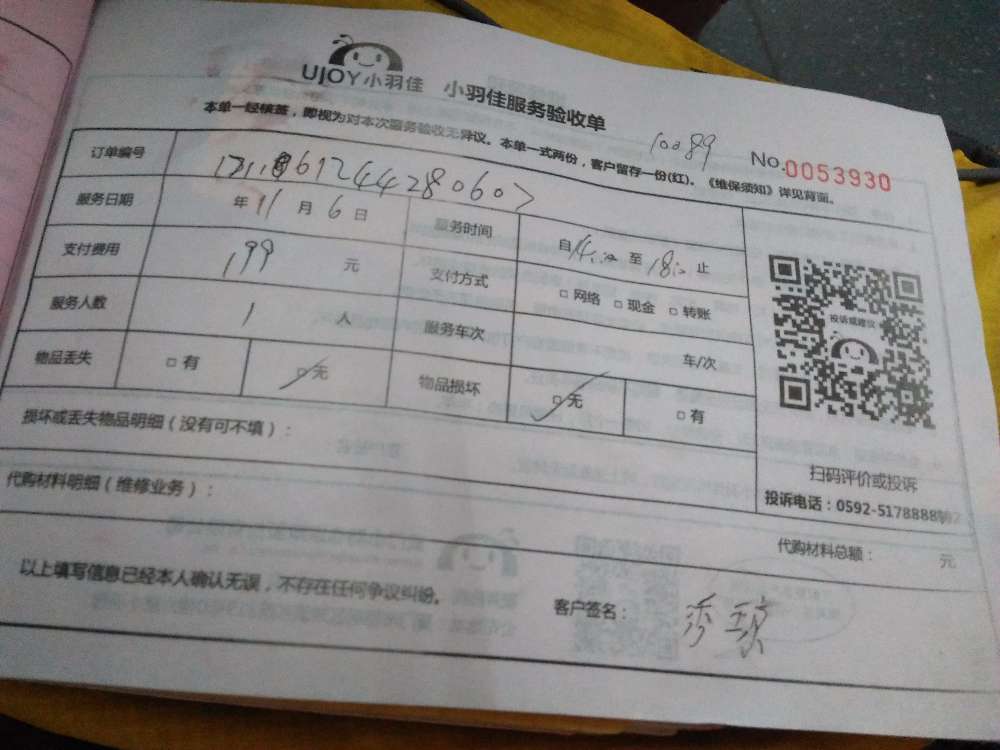 UJOY小羽佳 小羽佳服务验收单
10089
No.0053930
本单一经核签，即视为对本次服务验收无异议。本单一式两份，客户留存一份(红)。《维保须知》详见背面。
订单编号
服务日期 年 11 月 6 日 服务时间 自 14:00 至 18:00 止
支付费用 199 元 支付方式 □ 网络 □ 现金 □ 转账
服务人数 1 人 服务车次 车/次
物品丢失 □ 有 □ 无 物品损坏 □ 无 □ 有
投诉或建议
损坏或丢失物品明细（没有可不填）：
扫码评价或投诉
代购材料明细（维修业务）：
投诉电话：0592-5178888
代购材料总额： 元
以上填写信息已经本人确认无误，不存在任何争议纠纷。
客户签名： 秀琼